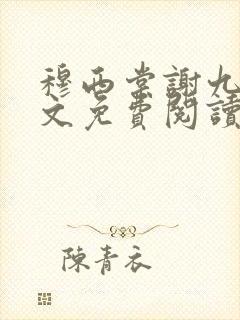 穆西棠謝九
文免費閱讀
陳青衣